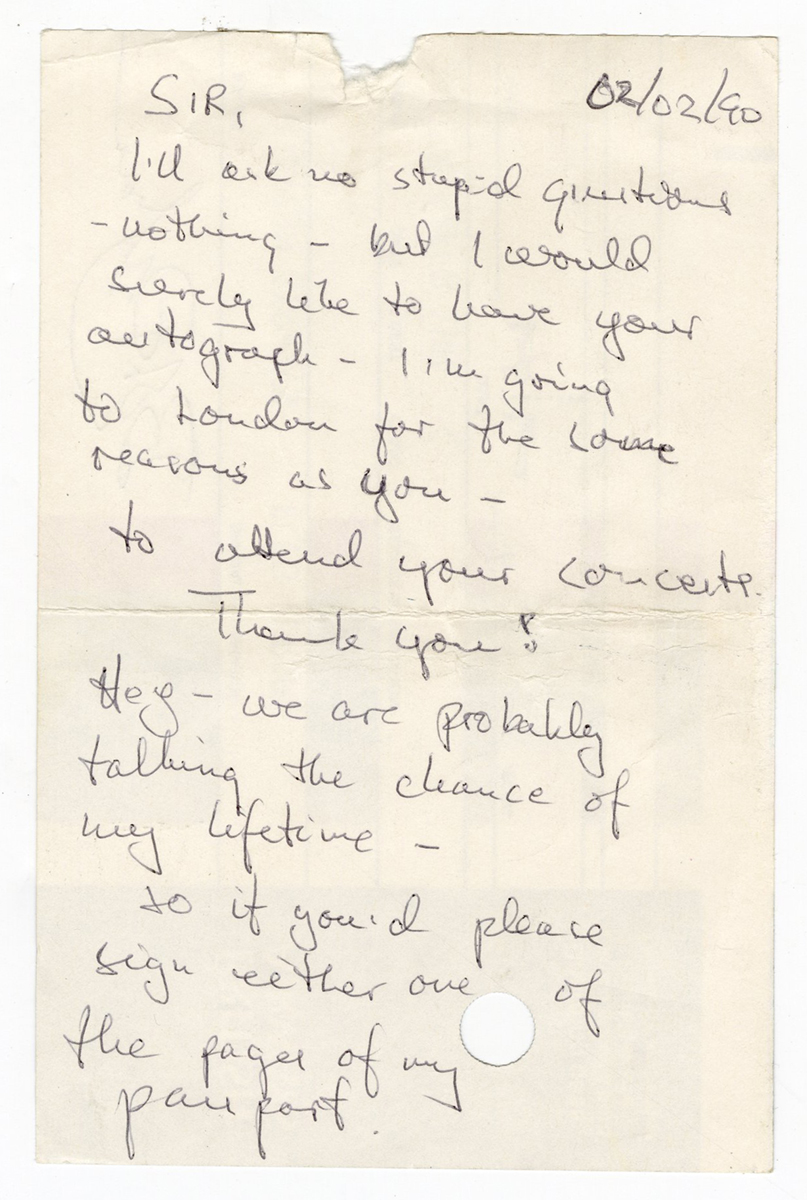 SIR,
02/02/90
I'll ask no stupid questions
- nothing - but I would
surely like to have your
autograph - I'm going
to London for the same
reasons as you -
to attend your concerts.
Thank you!
Hey - we are probably
talking the chance of
my lifetime -
so if you'd please
sign either one of
the pages of my
passport.